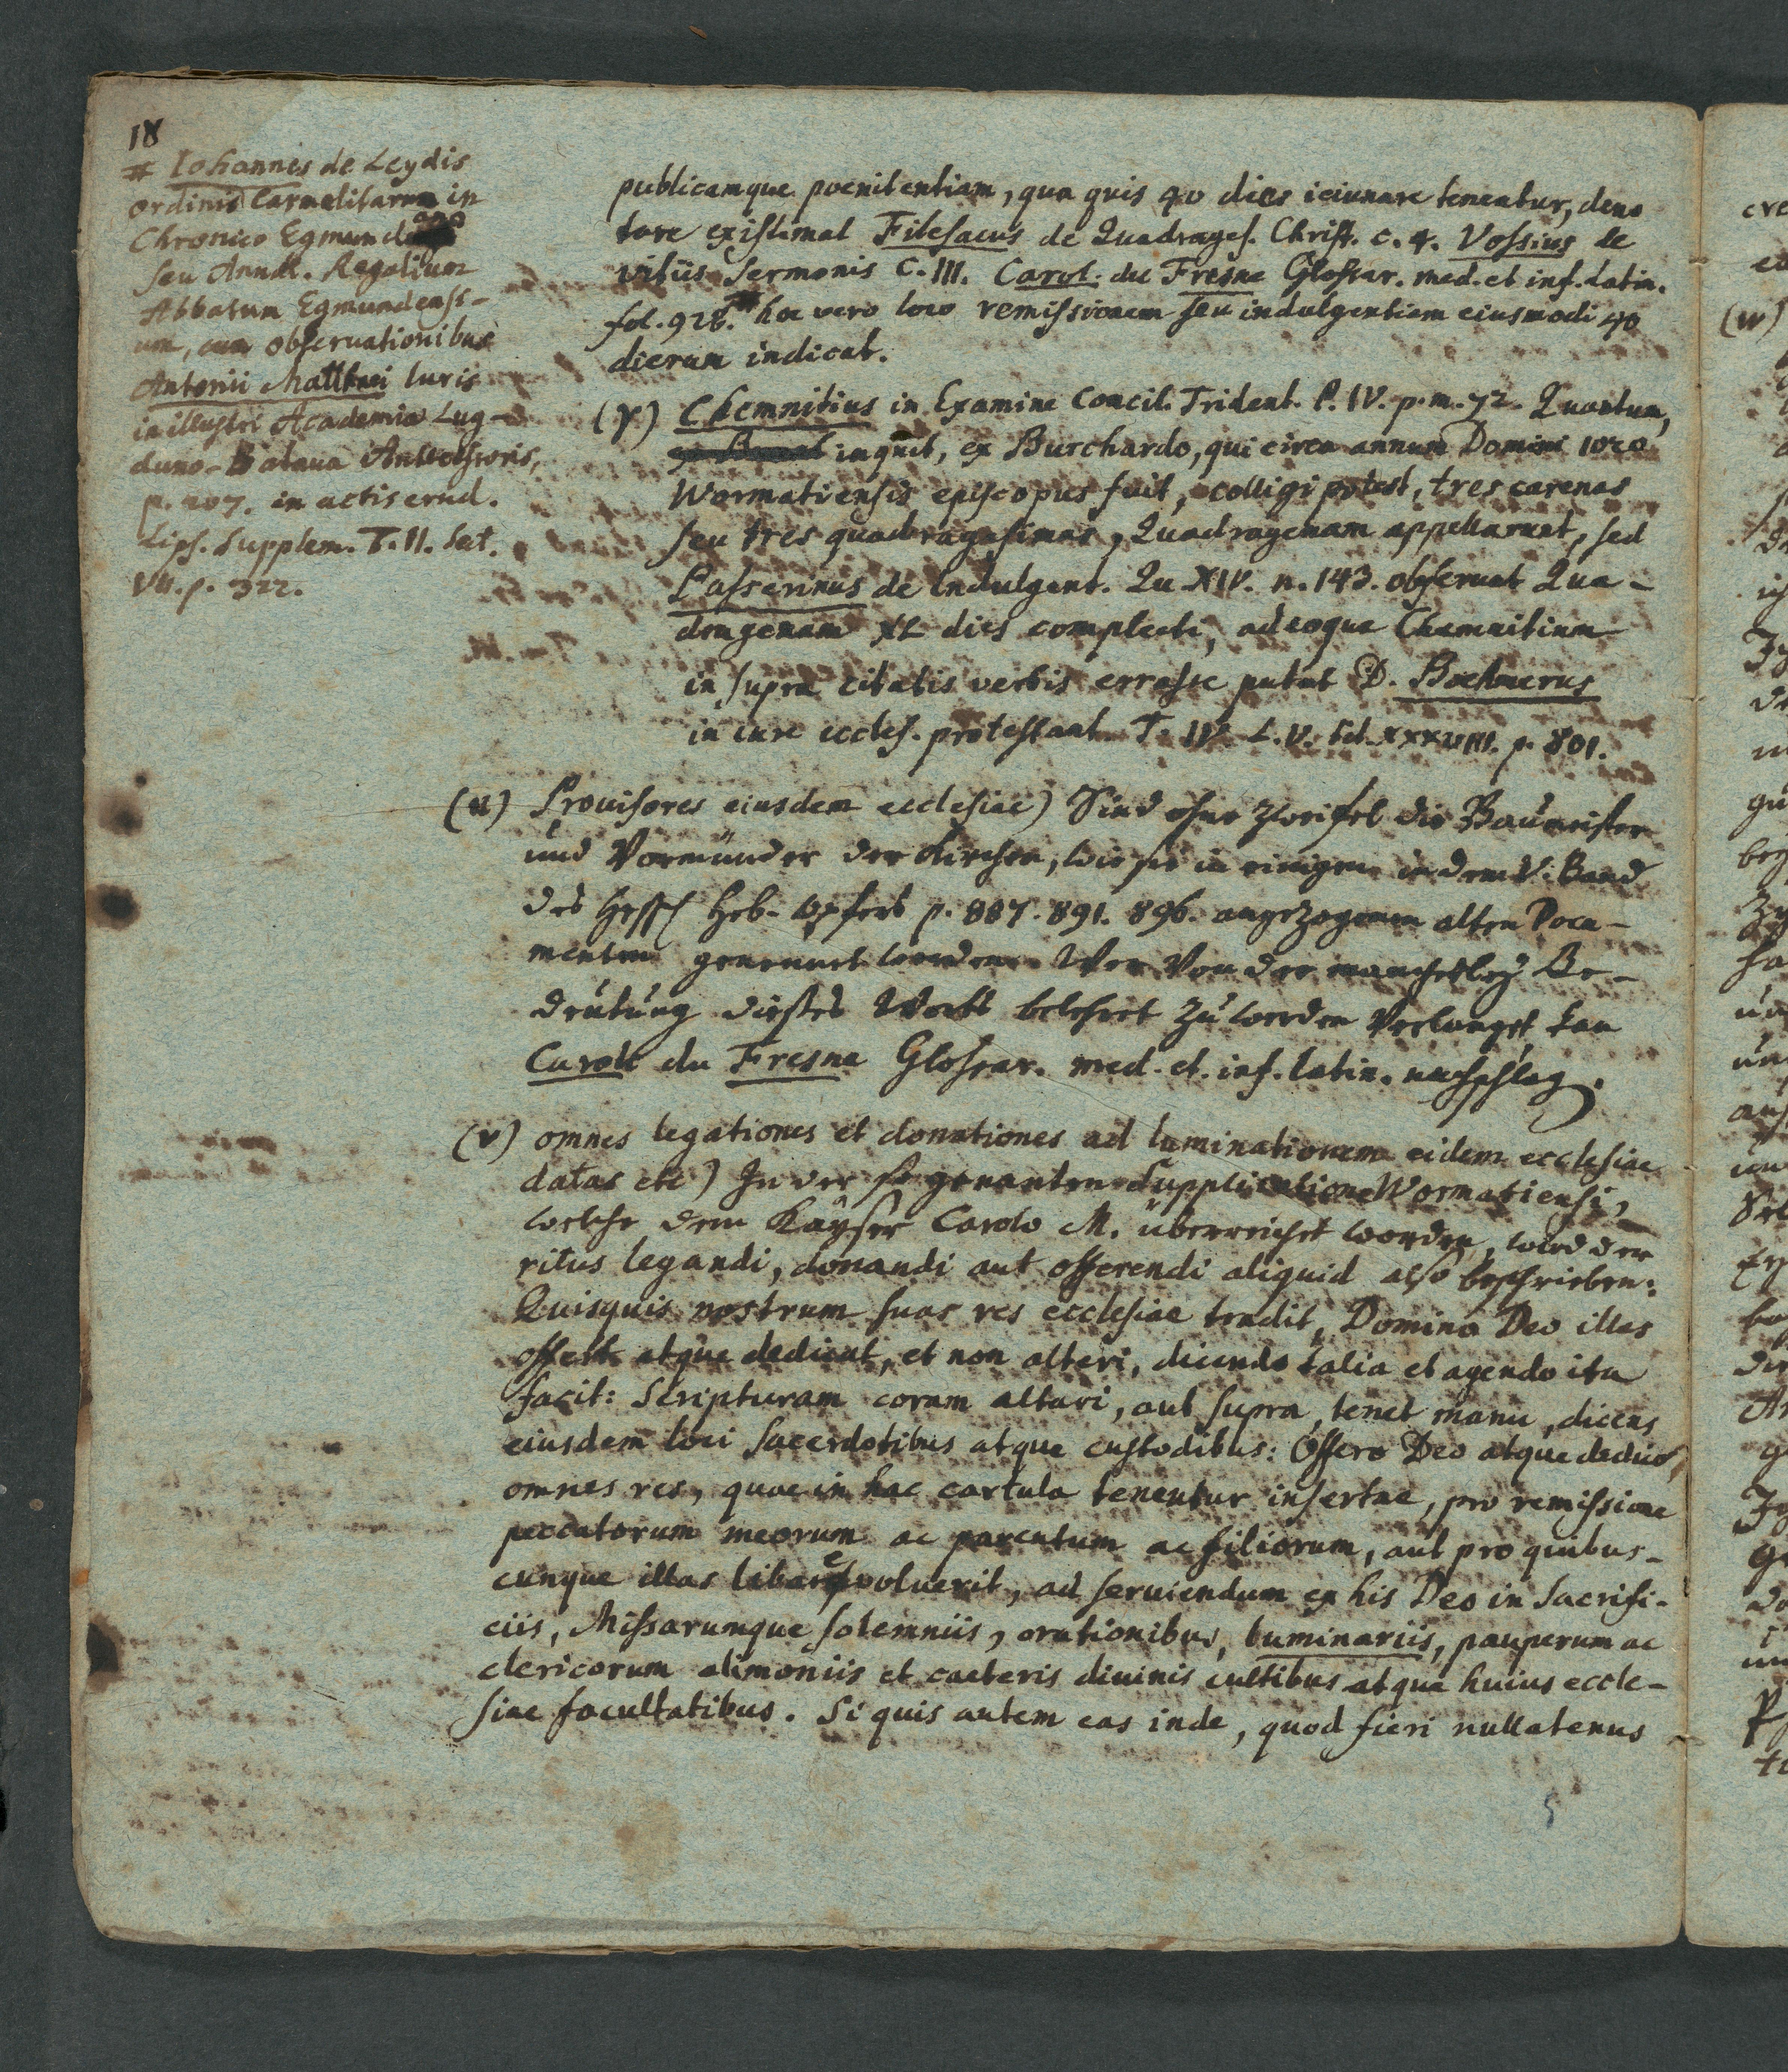 18
# Iohannes de Leydis
ordinis Carmelitarum in
Chronico Egmundano
seu Annal. Regalium
Abbatum Egmundens-
um, cum obseruationibus
Antonii Matthaei Iuris
in illustri Academia Lug-
duno-Bataua Antecessoris,
p. 207. in actis erud.
Lips. Supplem. T. II. Sect.
VII. p. 322.
publicamque poenitentiam, qua quis 40 dies ieiunare teneatur, deno
tare existimat Filesacus de Quadrages. Christ. c. 4. Vossius de
vitiis Sermonis C. III. Carol. du Fresne Glossar. med. et inf. Latin.
fol. 928. # hoc vero loco remissionem seu indulgentiam eiusmodi 40
dierum indicat.
(γ) Chemnitius in Examine Concil. Trident. P. IV. p. m. 72. Quantum,
inquit, ex Burchardo, qui circa annum Domini 1020
Wormatiensis episcopus fuit, colligi potest, tres carenas
seu tres quadragesimas, Quadragenam appellarunt, sed
Passerinus de Indulgent. Qu. XIV. n. 143. obseruat Qua-
dragenam XL dies complecti, adeoque Chemnitium
in supra citatis verbis errasse putat D. Boehmerus
in iure eccles. protestant. T. IV. L. V. tit. XXXVIII. p. 801.
(u) Prouisores eiusdem ecclesiae) Sind ohne Zweifel die Baumeister
und Vormünder der Kirchen, wie sie in einigen in dem V. Band
des Hess. Heb-Opfers p. 887. 891. 896. angezogenen alten Docu-
menten genennet werden. Wer von der mancherley Be-
deutung dieses Worts belehret zu werden verlanget, kan
Caroli du Fresne Glossar. med. et. inf. latin. nachschlag.
(v) omnes legationes et donationes ad luminationem eidem ecclesiae
datas etc) In der so genanten Supplicatione Wormatiensi,
welche dem Kayser Carolo M. überreichet worden, wird der
ritus legandi, donandi aut offerendi aliquid also beschrieben:
Quisquis nostrum suas res ecclesiae tradit, Domino Deo illas
offert atque dedicat, et non alteri, dicendo talia et agendo ita
facit: Scripturam coram altari, aut supra, tenet manu, dicens
eiusdem loci sacerdotibus atque custodibus: Offero Deo atque dedico
omnes res, quae in hac cartula tenentur insertae, pro remissione
peccatorum meorum ac parentum ac filiorum, aut pro quibus-
cunque illas libare voluerit, ad seruiendum ex his Deo in Sacrifi-
ciis, Missarumque solemniis, orationibus, luminariis, pauperum ac
clericorum alimoniis et caeteris diuinis cultibus atque huius eccle-
siae facultatibus. Si quis autem eas inde, quod fieri nullatenus
5